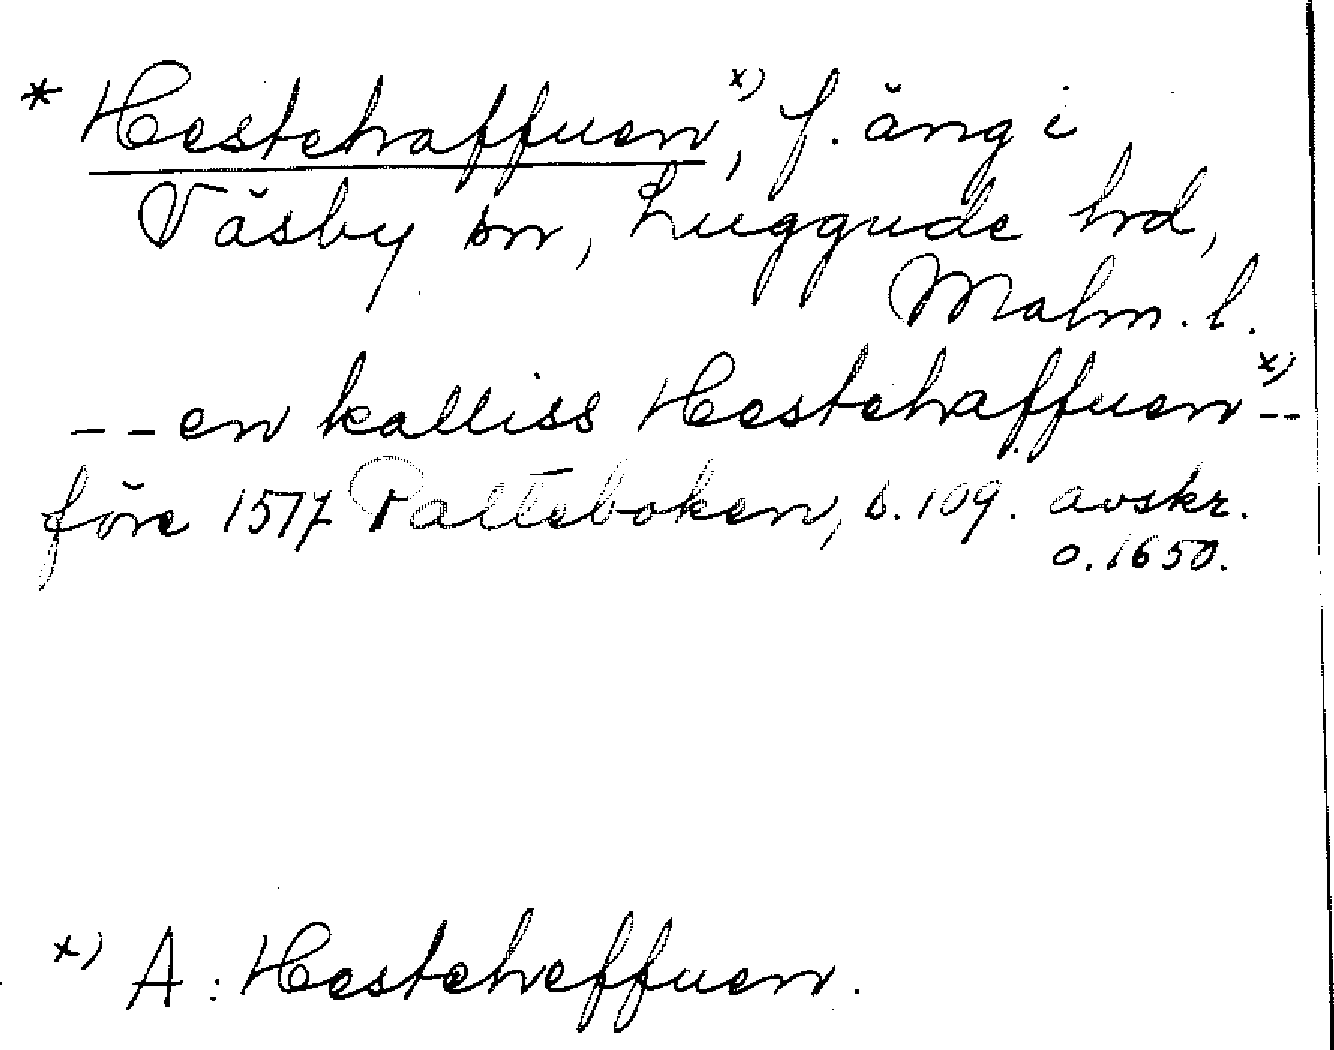 * Hestehaffuen x), f. äng i
Väsby sn, Luggude hd,
Malm. l.
-- en kalliss Hestehaffuen x) --
före 1577 Palteboken, s. 109. avskr.
o. 1650.
x) A: Hesteheffuen.